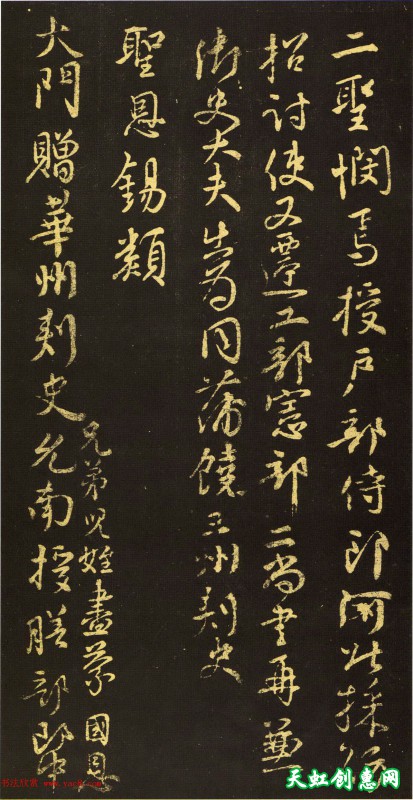 二聖憫焉授戶部侍郎河北採訪
招討使又遷工部憲部二尚書再兼
御史大夫出為同蒲饒三州刺史
聖恩錫類
兄弟兒姪盡蒙國恩
大門贈華州刺史允南授膳部郎中
天虹创惠网